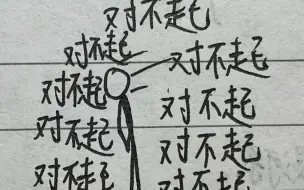 对不起
对不起
对不起
对不起
对不起
对不起
对不起
对不起
对不起